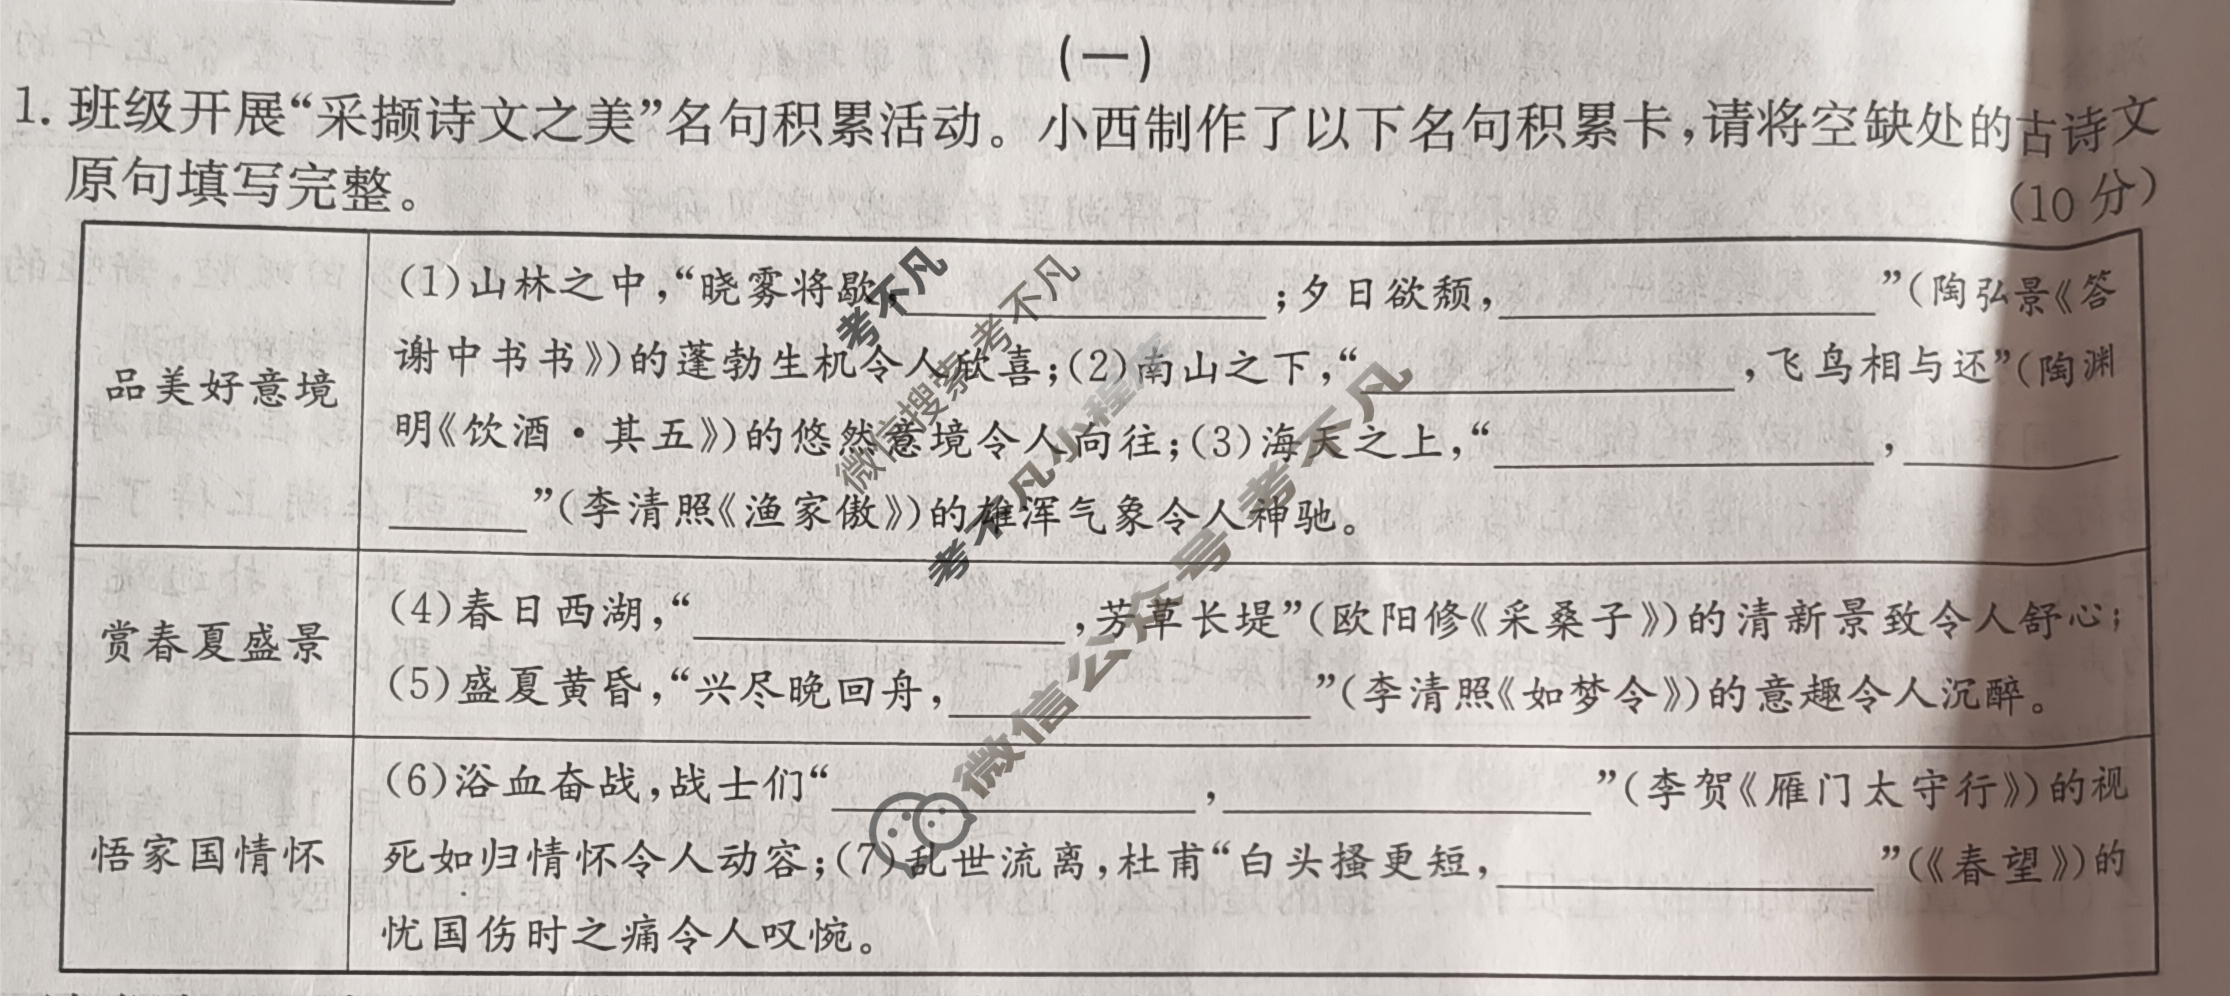 (一)
1. 班级开展“采撷诗文之美”名句积累活动。小西制作了以下名句积累卡,请将空缺处的古诗文
原句填写完整。
(10分)
品美好意境
(1)山林之中,“晓雾将歇,____;夕日欲颓,____”(陶弘景《答
谢中书书》)的蓬勃生机令人欣喜;(2)南山之下,“____,飞鸟相与还”(陶渊
明《饮酒·其五》)的悠然意境令人向往;(3)海天之上,“____,____
____”(李清照《渔家傲》)的雄浑气象令人神驰。
赏春夏盛景
(4)春日西湖,“____,芳草长堤”(欧阳修《采桑子》)的清新景致令人舒心;
(5)盛夏黄昏,“兴尽晚回舟,____”(李清照《如梦令》)的意趣令人沉醉。
悟家国情怀
(6)浴血奋战,战士们“____,____”(李贺《雁门太守行》)的视
死如归情怀令人动容;(7)乱世流离,杜甫“白头搔更短,____”(《春望》)的
忧国伤时之痛令人叹惋。
考不凡
微信搜索 考不凡
考不凡小程序
微信公众号 考不凡